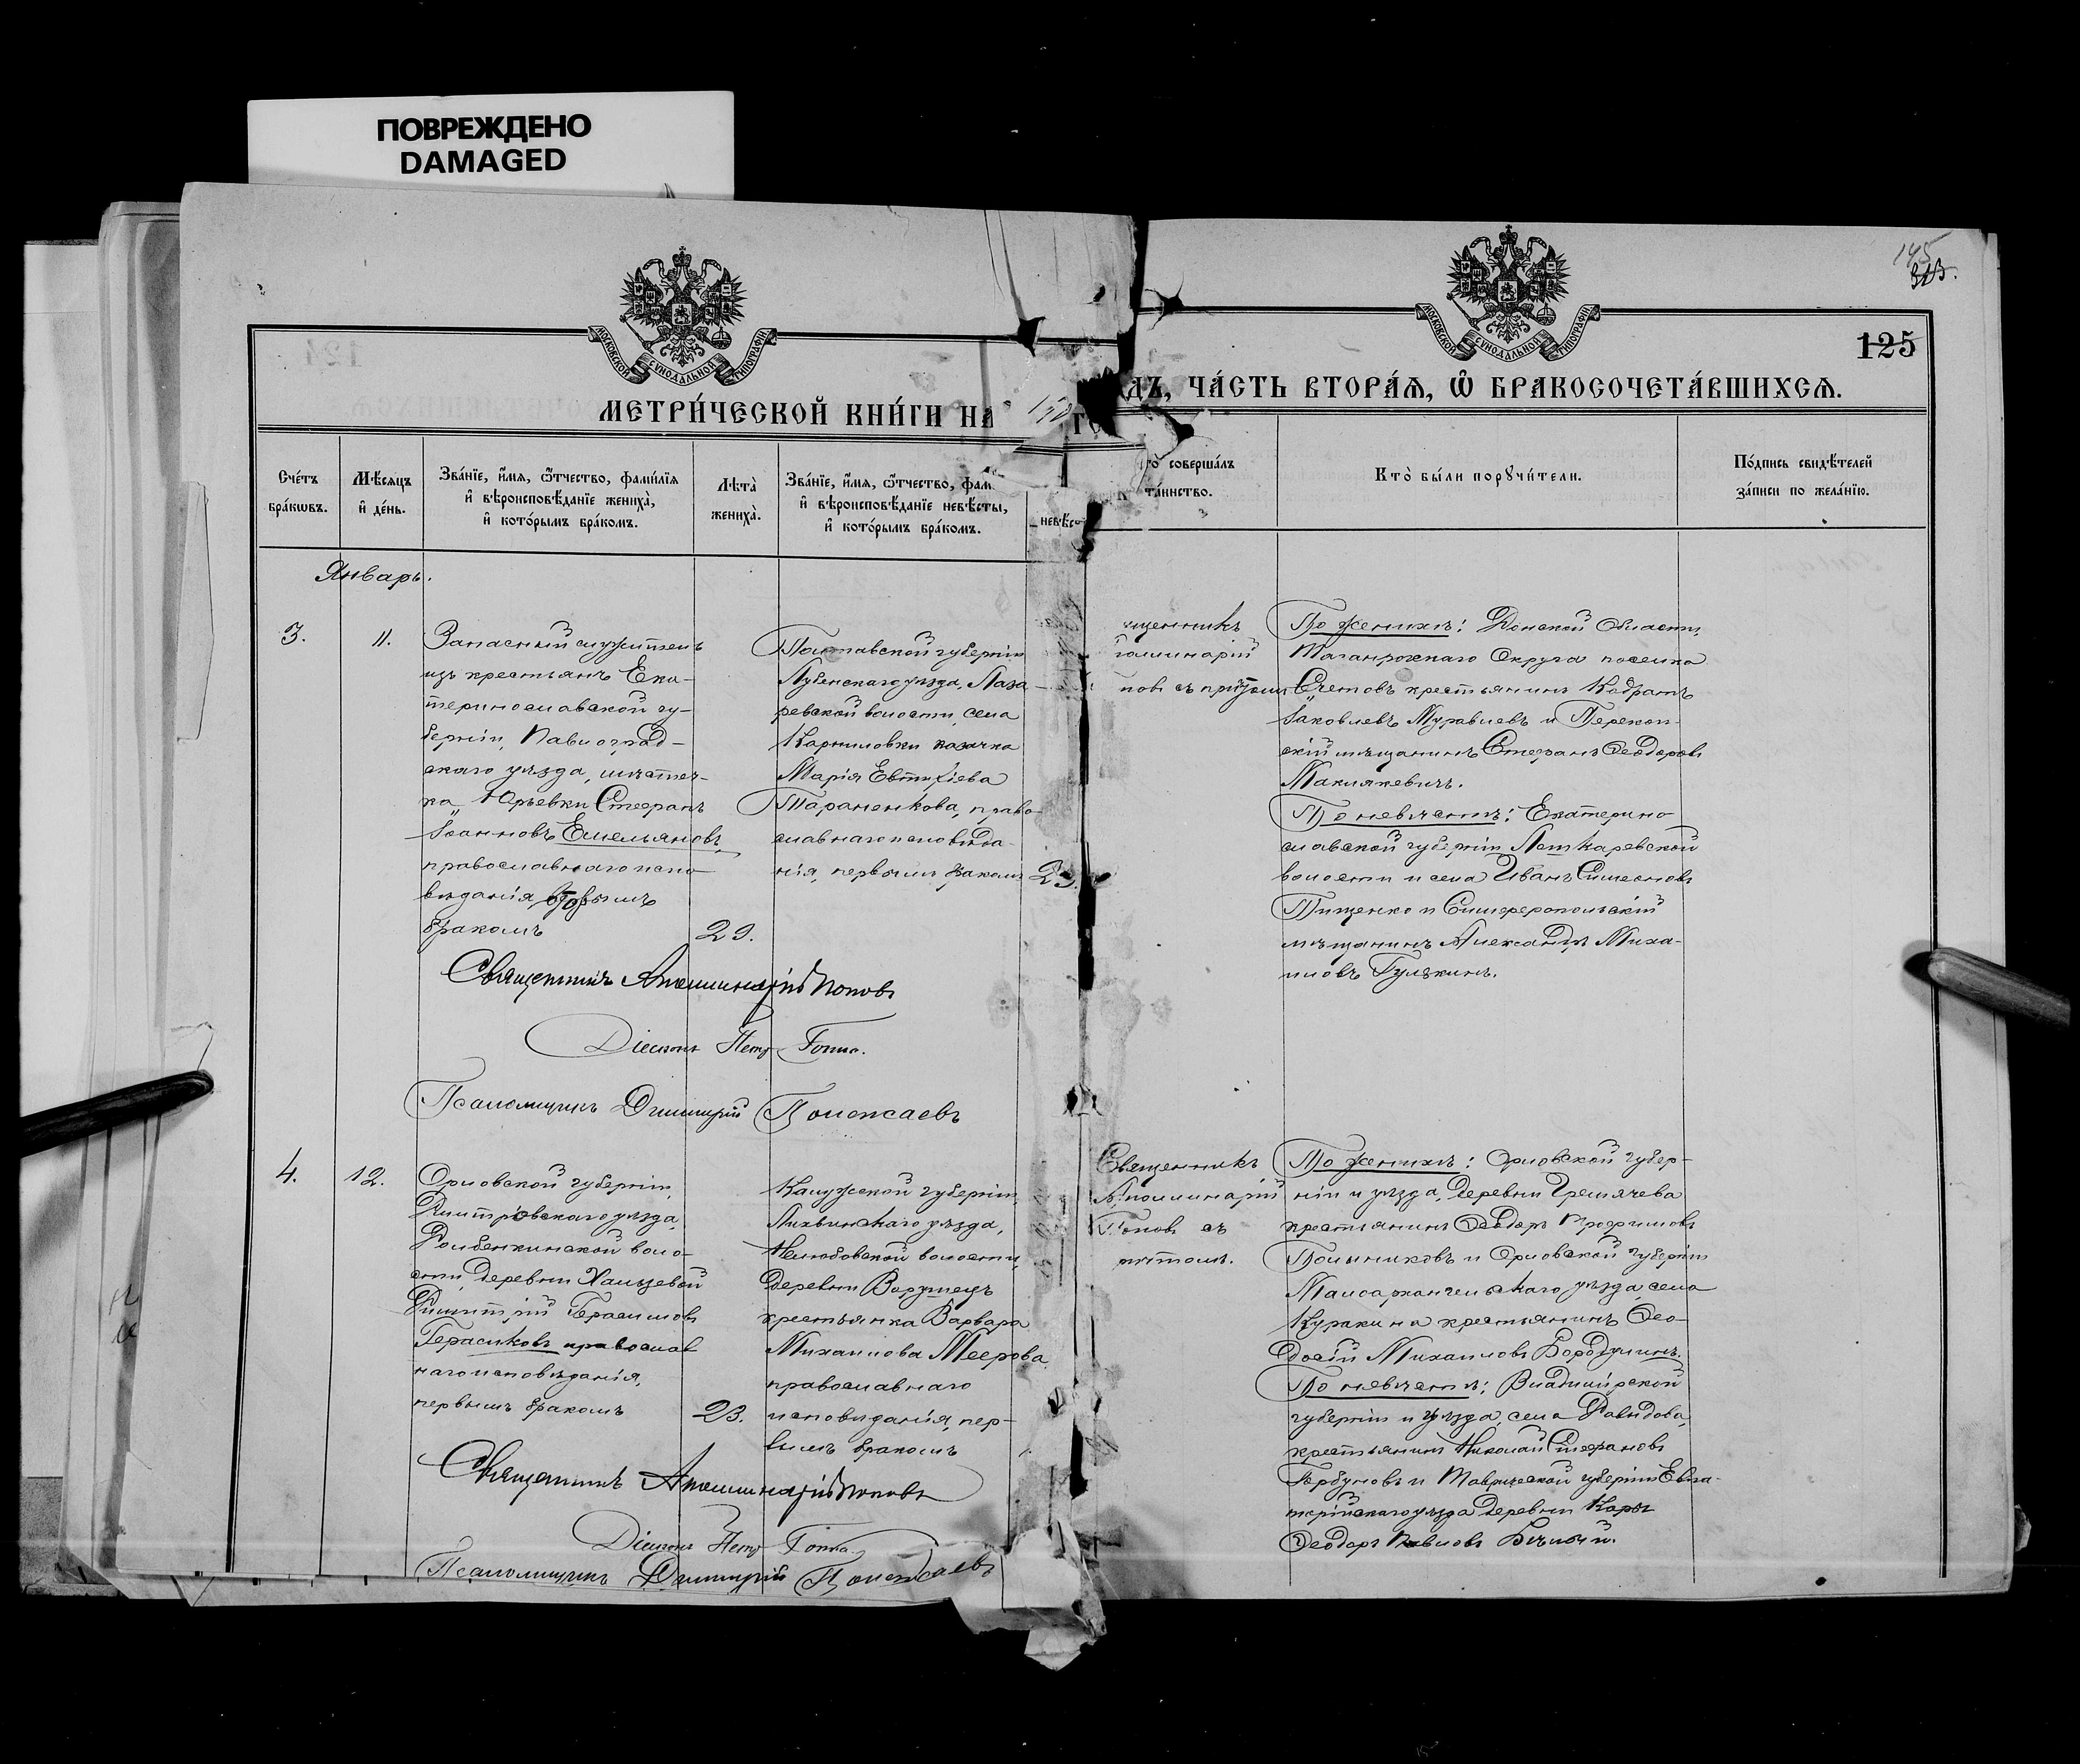 ПОВРЕЖДЕНО
DAMAGED
145
125
МОСКОВСКОЙ СѴНОДАЛЬНОЙ ТИПОГРАФІИ
МОСКОВСКОЙ СѴНОДАЛЬНОЙ ТИПОГРАФІИ
МЕТРИ́ЧЕСКОЙ КНИ́ГИ НА ГО
ДЪ, ЧА́СТЬ ВТОРА́Я, Ѡ҆ БРАКОСОЧЕТА́ВШИХСЯ.
Сче́тъ
бра́кѡвъ.
Мѣ́сяцъ
и҆ де́нь.
Зва́нїе, и҆́мя, ѻ҆́тчество, фами́лїя
и҆ вѣроисповѣ́данїе жениха̀,
и҆ кото́рымъ бра́комъ.
Лѣта̀
жениха̀.
Зва́нїе, и҆́мя, ѻ҆́тчество, фам
и҆ вѣроисповѣ́данїе невѣ́сты,
и҆ кото́рымъ бра́комъ.
невѣс
то̀ соверша́лъ
та́инство.
Кто̀ бы́ли порꙋчи́тели.
По́дпись свидѣ́телей
за́писи по жела́нїю.
Январь.
3.
11.
Запасный служитель
изъ крестьянъ Ека-
теринославской гу-
берніи, Павлоград-
скаго уѣзда, мѣстеч-
ка Юрьевки Стефанъ
Іоанновъ Емельяновъ,
православнаго испо-
вѣданія, вторымъ
бракомъ
29.
Полтавской губерніи
Лубенскаго уѣзда, Лаза-
ревской волости, села
Корниловки казачка
Марія Евтихіева
Тараненкова, право-
славнаго исповѣда-
нія, первымъ бракомъ
щенникъ
поллинарій
повъ съ причтомъ
По женихѣ: Донской Области,
Таганрогскаго Округа поселка
крестьянинъ Кодратъ
Іаковлевъ Муравлевъ и Перекоп-
скій мѣщанинъ Стефанъ Ѳеодоровъ
Маклякевичъ.
По невѣстѣ: Екатерино-
славской губерніи
волости и села Иванъ Симеоновъ
Тищенко и Симферопольскій
мѣщанинъ Александръ Миха-
иловъ
Священникъ Аполлинарій Поповъ
Діаконъ Петръ
Псаломщикъ Димитрій Полежаевъ
4.
12.
Орловской губерніи,
Дмитріевскаго уѣзда,
воло-
сти, деревни
Димитрій Герасимовъ
Герасиковъ православ
наго исповѣданія,
первымъ бракомъ
23.
Калужской губерніи,
Лихвинскаго уѣзда,
волости,
деревни
крестьянка Варвара
Михаилова Меерова,
православнаго
исповѣданія, пер-
вымъ бракомъ
Священникъ
Аполлинарій
Поповъ съ
причтомъ.
По женихѣ: Орловской губер-
ніи и уѣзда, деревни Гремячева
крестьянинъ Ѳеодоръ Трофимовъ
и Орловской губерніи
Малоархангельскаго уѣзда, села
Куракина крестьянинъ Ѳео-
досій Михаиловъ Бородулинъ.
По невѣстѣ: Владимірской
губерніи и уѣзда, села Давыдова,
крестьянинъ Николай Стефановъ
Горбуновъ и Таврической губерніи Евпа-
торійскаго уѣзда деревни
Ѳеодоръ Павловъ
Священникъ Аполлинарій Поповъ
Діаконъ Петръ
Псаломщикъ Димитрій Полежаевъ